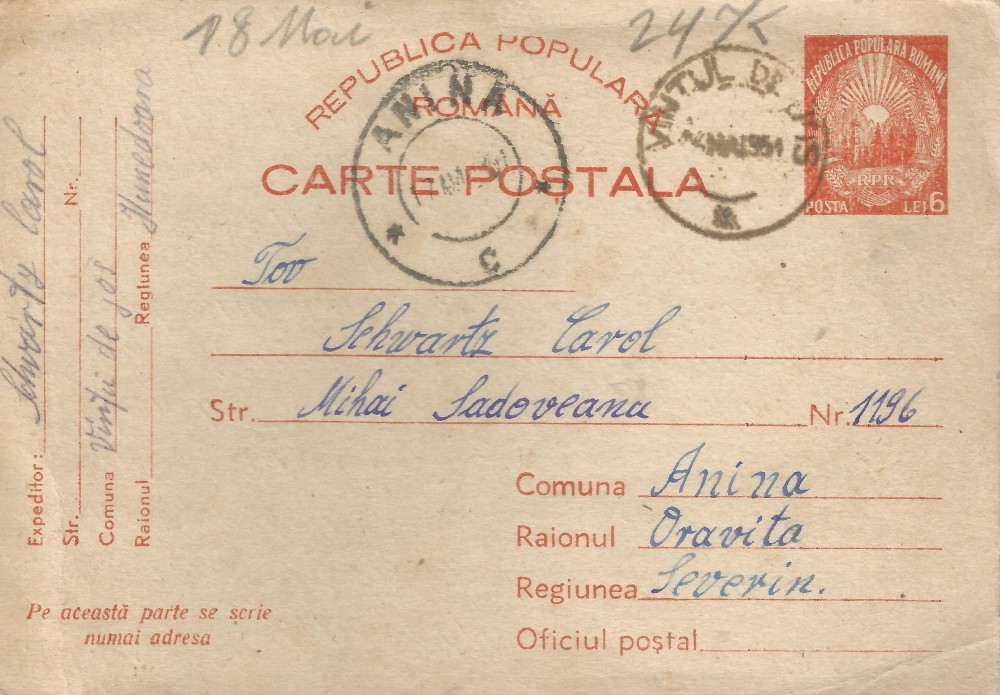 18 Mai
24 K
REPUBLICA POPULARĂ
ROMÂNĂ
CARTE POȘTALA
ANINA
C
VINTUL DE JOS
MAI 951
REPUBLICA POPULARĂ ROMÂNĂ
RPR
POSTA LEI 6
Tov
Schwartz Carol
Str. Mihai Sadoveanu Nr. 1196
Comuna Anina
Raionul Oravita
Regiunea Severin.
Oficiul poștal
Expeditor: Schwartz Carol
Str. Nr.
Comuna Vinții de jos
Raionul Regiunea Hunedoara
Pe această parte se scrie
numai adresa